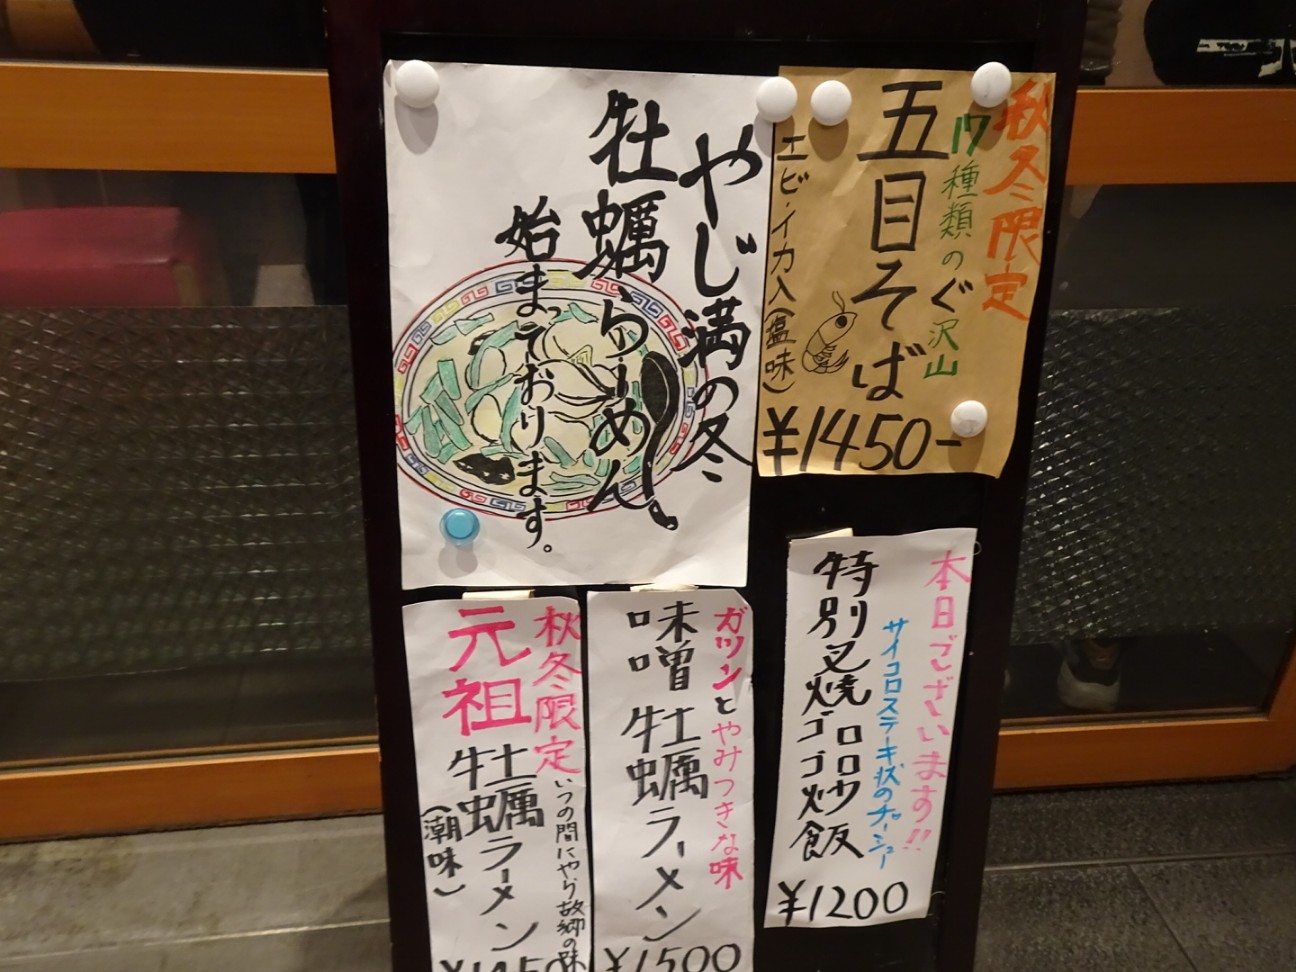 やじ満の冬
牡蠣らーめん
始まっております。
秋冬限定
17種類のぐ沢山
五目そば
エビ・イカ入(塩味)
¥1450-
秋冬限定
元祖
牡蠣ラーメン
(潮味)
いつの間にやら故郷の味
¥1450
ガツンとやみつきな味
味噌牡蠣ラーメン
¥1500
本日ございます!!
サイコロステーキ状のチャーシュー
特別叉焼ゴロゴロ炒飯
¥1200